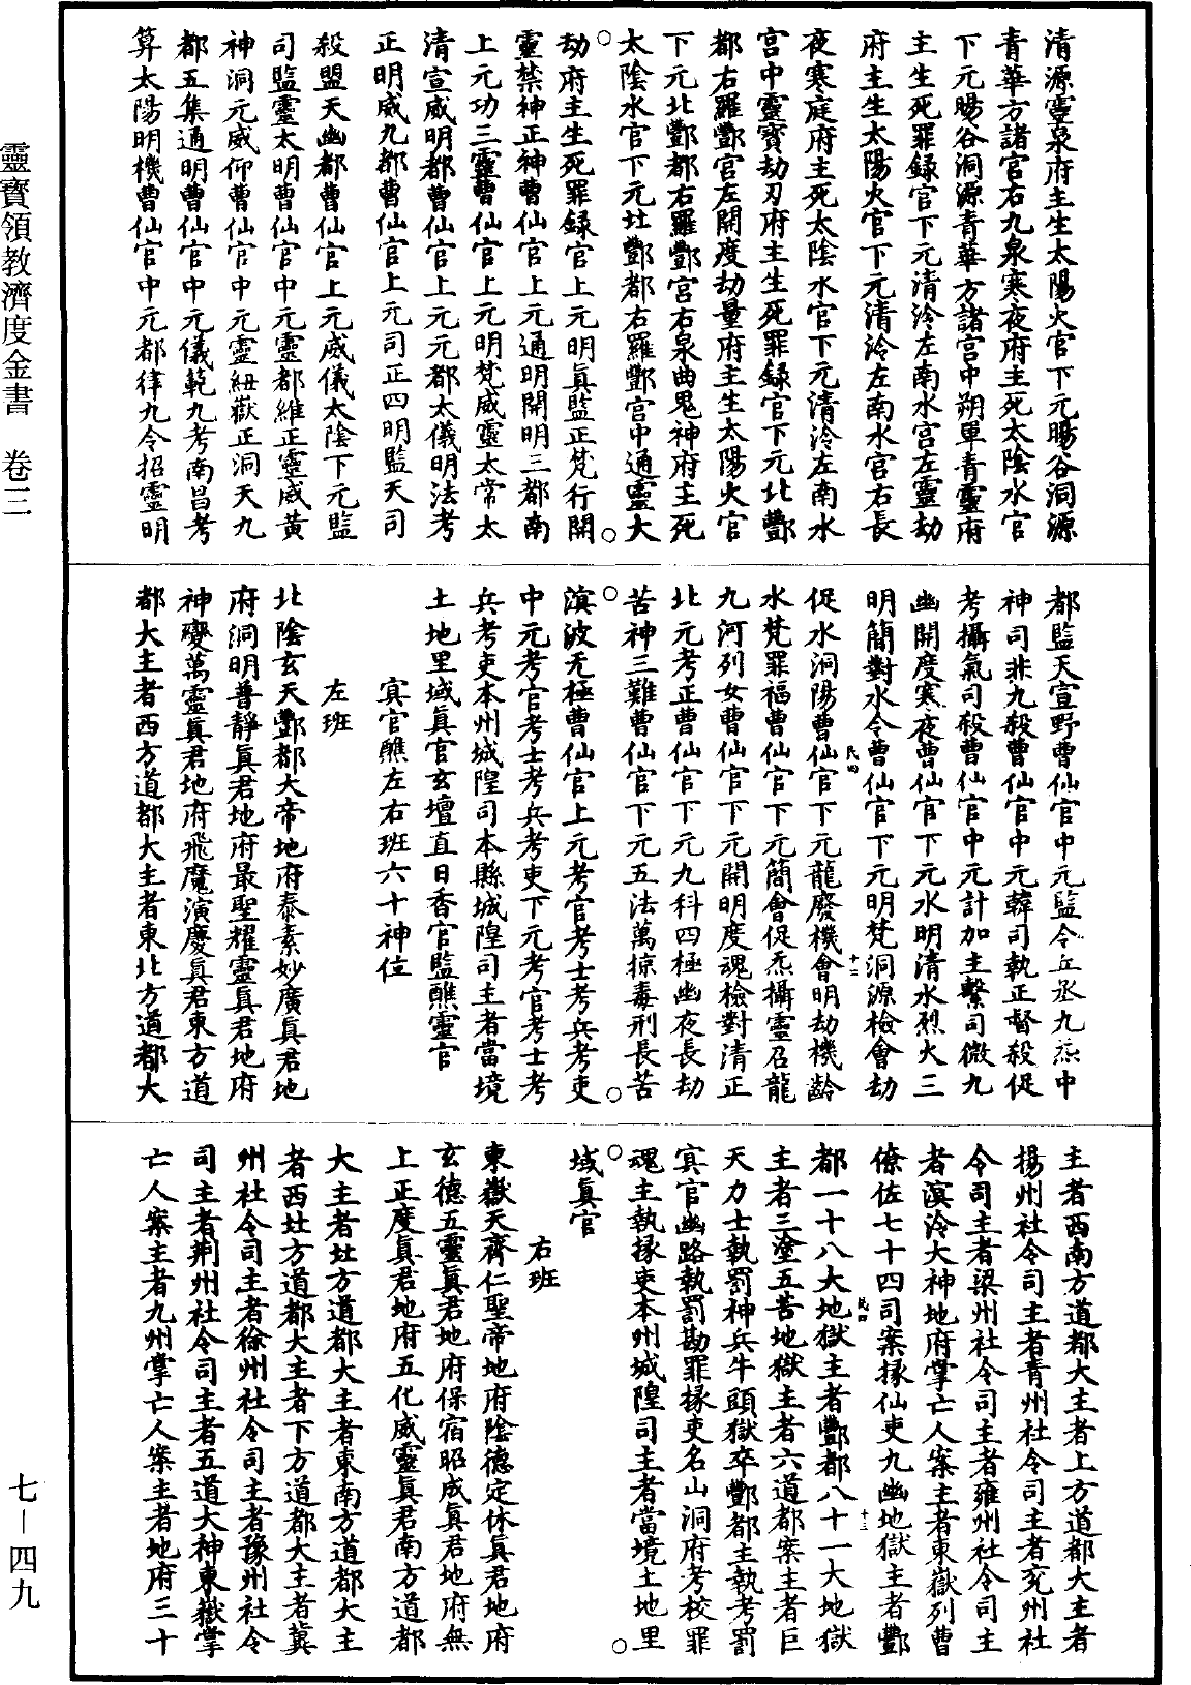 清源靈泉府主生太陽火官下元暘谷洞源
青華方諸宮右九泉寒夜府主死太陰水官
下元暘谷洞源青華方諸宮中朔單青靈府
主生死罪録官下元清泠左南水宮左靈劫
府主生太陽火官下元清泠左南水宮右長
夜寒庭府主死太陰水官下元清泠左南水
宮中靈寶劫刃府主生死罪録官下元北酆
都右羅酆宮左開度劫量府主生太陽火官
下元北酆都右羅酆宮右泉曲鬼神府主死
太陰水官下元北酆都右羅酆宮中通靈大
劫府主生死罪録官上元明眞監正梵行開
靈禁神正神曹仙官上元通明開明三都南
上元功三靈曹仙官上元明梵威靈太常太
清宣威明都曹仙官上元元都太儀明法考
正明威九都曹仙官上元司正四明監天司
殺盟天幽都曹仙官上元威儀太陰下元監
司監靈太明曹仙官中元靈都維正靈威黄
神洞元威仰曹仙官中元靈紐嶽正洞天九
都五集通明曹仙官中元儀範九考南昌考
算太陽明機曹仙官中元都律九令招靈明
都監天宣野曹仙官中元監令丘丞九炁中
神司非九殺曹仙官中元韓司執正督殺促
考攝氣司殺曹仙官中元計加主繫司微九
幽開度寒夜曹仙官下元水明清水烈火三
明簡對水令曹仙官下元明梵洞源檢會劫
促水洞陽曹仙官下元龍廢機會明劫機齡
水梵罪福曹仙官下元簡會促炁攝靈召龍
九河列女曹仙官下元開明度魂檢對清正
北元考正曹仙官下元九科四極幽夜長劫
苦神三難曹仙官下元五法萬掠毒刑長苦
溟波无極曹仙官上元考官考士考兵考吏
中元考官考士考兵考吏下元考官考士考
兵考吏本州城隍司本縣城隍司主者當境
土地里域眞官玄壇直日香官監醮靈官
冥官醮左右班六十神位
左班
北陰玄天酆都大帝地府泰素妙廣眞君地
府洞明普靜眞君地府最聖耀靈眞君地府
神變萬靈眞君地府飛魔演慶眞君東方道
都大主者西方道都大主者東北方道都大
主者西南方道都大主者上方道都大主者
揚州社令司主者青州社令司主者兖州社
令司主者梁州社令司主者雍州社令司主
者溟泠大神地府掌亡人案主者東嶽列曹
僚佐七十四司案掾仙吏九幽地獄主者酆
都一十八大地獄主者酆都八十一大地獄
主者三塗五苦地獄主者六道都案主者巨
天力士執罰神兵牛頭獄卒酆都主執考罰
冥官幽路執罰勘罪掾吏名山洞府考校罪
魂主執掾吏本州城隍司主者當境土地里
域眞官
右班
東嶽天齊仁聖帝地府陰德定休眞君地府
玄德五靈眞君地府保宿昭成眞君地府無
上正度眞君地府五化威靈眞君南方道都
大主者北方道都大主者東南方道都大主
者西北方道都大主者下方道都大主者冀
州社令司主者徐州社令司主者豫州社令
司主者荆州社令司主者五道大神東嶽掌
亡人案主者九州掌亡人案主者地府三十
靈寶領教濟度金書　卷三
七—四九